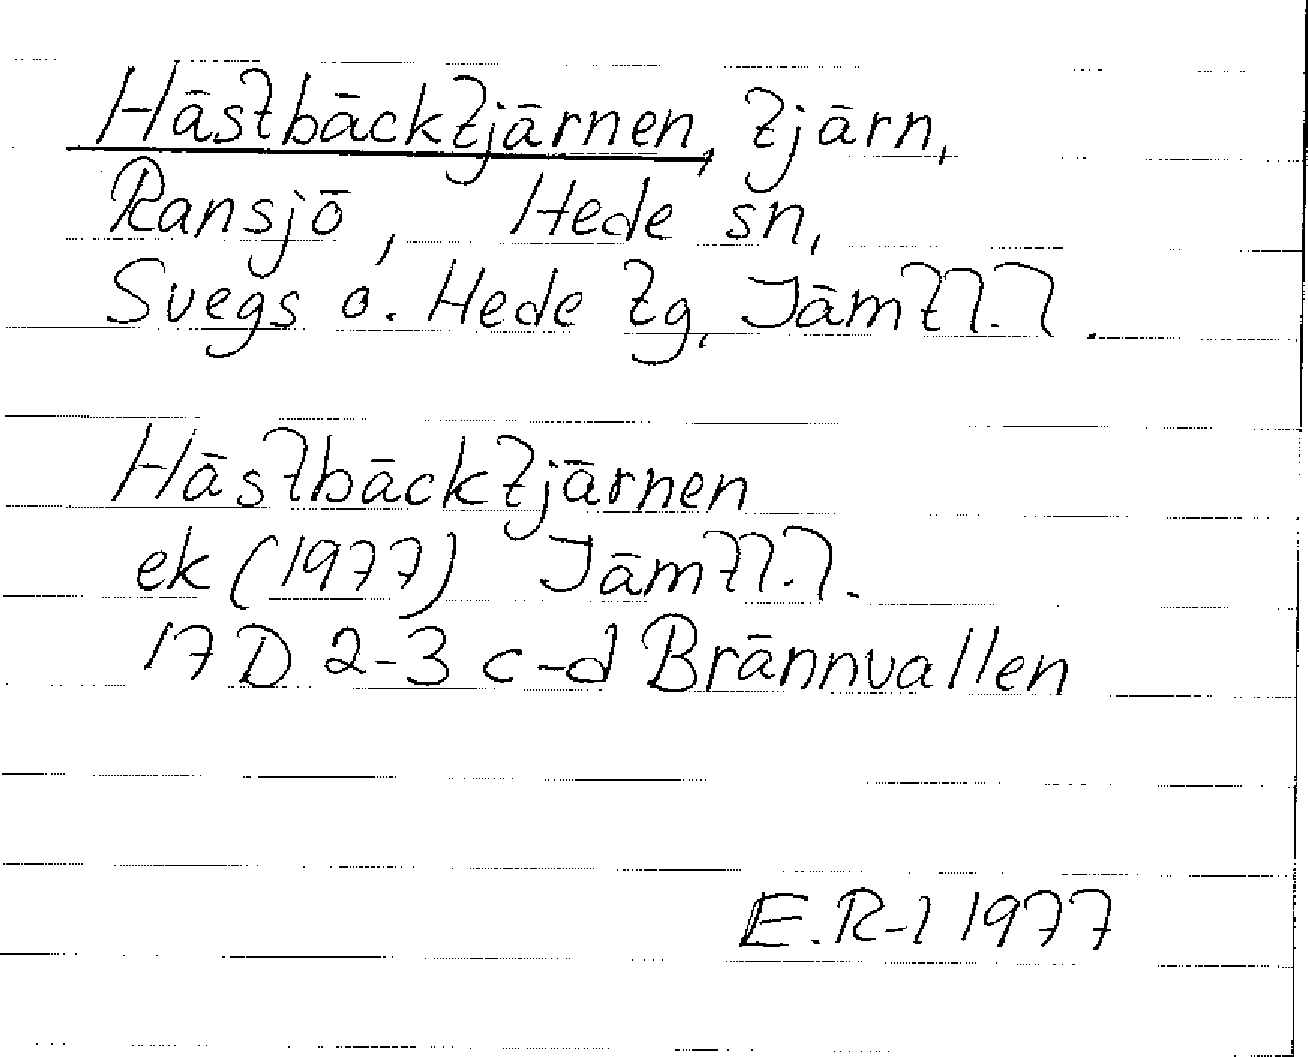 Hästbäcktjärnen, tjärn,
Ransjö, Hede sn,
Svegs o. Hede tg, Jämtl.l.
Hästbäcktjärnen
ek (1977) Jämtl.l.
17D 2-3 c-d Brännvallen
E.R-l 1977